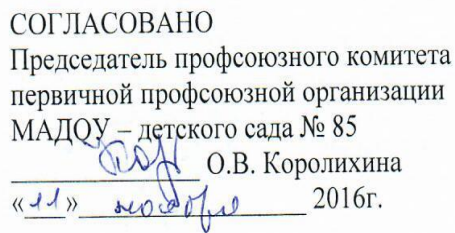 СОГЛАСОВАНО
Председатель профсоюзного комитета
первичной профсоюзной организации
МАДОУ – детского сада № 85
О.В. Королихина
«11» ноября 2016г.